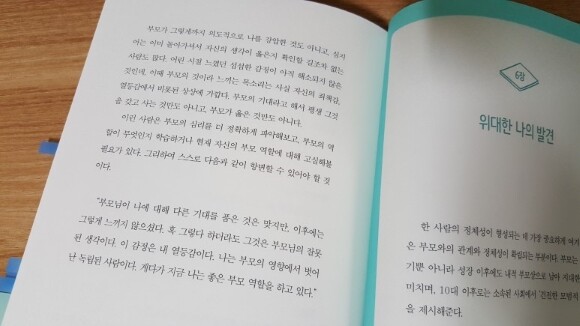 부모가 그렇게까지 의도적으로 나를 강압한 것도 아니고, 심지
어는 이미 돌아가셔서 자신의 생각이 옳은지 확인할 길조차 없는
사람도 많다. 어린 시절 느꼈던 섭섭한 감정이 아직 해소되지 않은
것인데, 이때 부모의 것이라 느끼는 목소리는 사실 자신의 죄책감,
열등감에서 비롯된 상상에 가깝다. 부모의 기대라고 해서 평생 그것
을 갖고 사는 것만도 아니고, 부모가 옳은 것만도 아니다.
이런 사람은 부모의 심리를 더 정확하게 파악해보고, 부모의 역
할이 무엇인지 학습하거나 현재 자신의 부모 역할에 대해 고심해볼
필요가 있다. 그리하여 스스로 다음과 같이 항변할 수 있어야 할 것
이다.
"부모님이 나에 대해 다른 기대를 품은 것은 맞지만, 이후에는
그렇게 느끼지 않으셨다. 혹 그렇다 하더라도 그것은 부모님의 잘못
된 생각이다. 이 감정은 내 열등감이다. 나는 부모의 영향에서 벗어
난 독립된 사람이다. 게다가 지금 나는 좋은 부모 역할을 하고 있다."
6장
위대한 나의 발견
한 사람의 정체성이 형성되는 데 가장 중요하게 여겨
은 부모와의 관계와 정체성이 확립되는 부분이다. 부모는
기뿐 아니라 성장 이후에도 내적 부모상으로 남아 지대한
미치며, 10대 이후로는 소속된 사회에서 '건전한 모델
을 제시해준다.